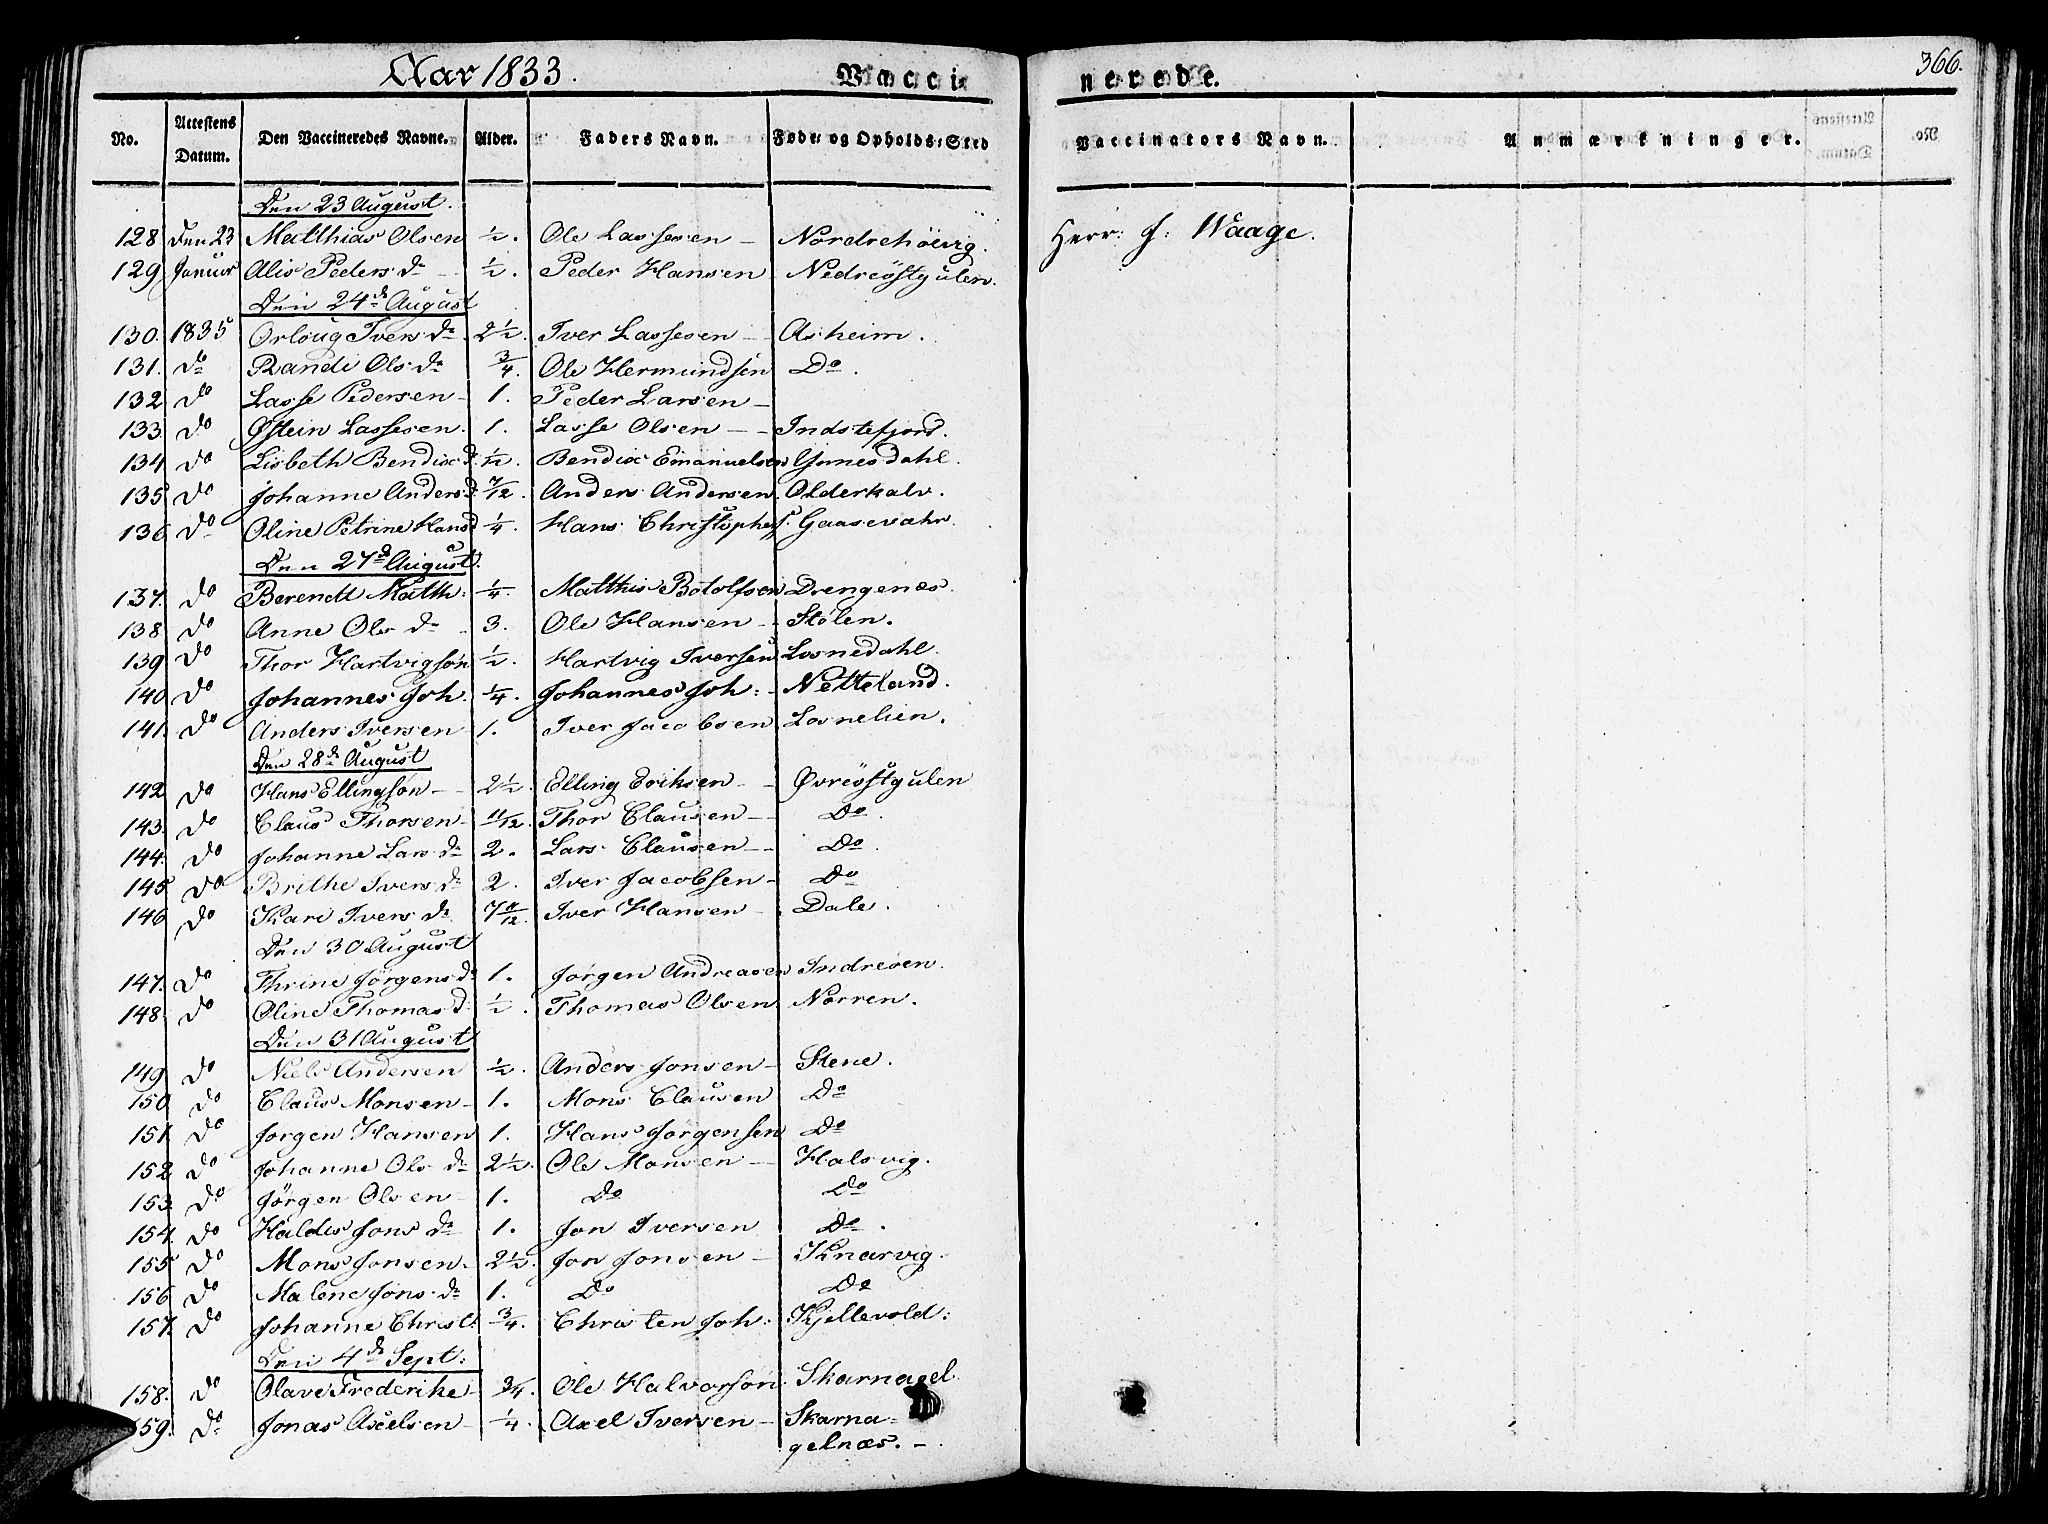 Aar 1833. Vacci nerede. 366.
No. Attestens Datum. Den Vaccineredes Navne. Alder. Faders Navn. Føde- og Opholds-Sted Vaccinators Navn. Anmærkninger.
Den 23 August.
128 Den 23 Matthias Olsen ½. Ole Lassesen – Nordrehöevig. Herr: J: Waage.
129 Januar Alis Peders Dr ½. Peder Hansen Nedreöstgulen.
Den 24de August
130. 1835 Orloug Ivers Dr 2½. Iver Lassesen – Asheim.
131. do Randi Ols Dr ¾. Ole Hermundsen Do.
132 do Lasse Pedersen – 1. Peder Larsen –
133 do Østein Lassesen. 1. Lasse Olsen – – Indstefjord.
134 do Lisbeth Bendix D. ½. Bendix Emanuelsen Ynnesdahl.
135 do Johanne Anders D 7/12. Anders Andersen. Olderkalv.
136 do Oline Petrine Hans D ¼. Hans Christophers. Gaasevahr.
Den 27de August.
137. do Berendt Matth: ¼. Matthis Botolfsen Drengenes.
138 do Anne Ols Dr – 3. Ole Hansen – – Stølen.
139 do Thor Hartvigsøn ½. Hartvig Iversen Losnedahl.
140 do Johannes Joh. ¼. Johannes Joh: – Netteland.
141. do Anders Iversen 1. Iver Jacobsen Losnelien.
Den 28de August
142 do Hans Ellingsøn – 2½. Elling Eriksen – – Øvreöstgulen
143. do Claus Thorsen – 11/12. Thor Clausen – Do.
144. do Johanne Lars Dr 2. Lars Clausen – – Do.
145 do Brithe Ivers Dr 2. Iver Jacobsen – Do
146 do Kari Ivers Dr 7 11/12 Iver Hansen – Dale.
Den 30 August
147. do Thrine Jörgens Dr 1. Jörgen Andreasen Indreöen.
148. do Oline Thomas D. ½. Thomas Olsen Norren.
Den 31 August
149 do Niels Andersen ½. Anders Jonsen – Stene.
150 do Claus Monsen – 1. Mons Clausen Do
151. do Jörgen Hansen 1. Hans Jörgensen Do
152 do Johanne Ols Dr 2½. Ole Monsen – Halsvig.
153. do Jörgen Olsen – 1. Do Do
154. do Haldis Jons Dr 1. Jon Iversen Do.
155 do Mons Jonsen. 2½. Jon Jonsen – Knarvig.
156 do Malene Jons Dr 1. Do Do
157. do Johanne Christ: ¾. Christen Joh: Kjellevold:
Den 4de Sept:
158. do Olave Frederike – ¾. Ole Halvorsøn. Skarnagel
159. do Jonas Axelsen – ¼. Axel Iversen – Skarna=
gelnæs. –